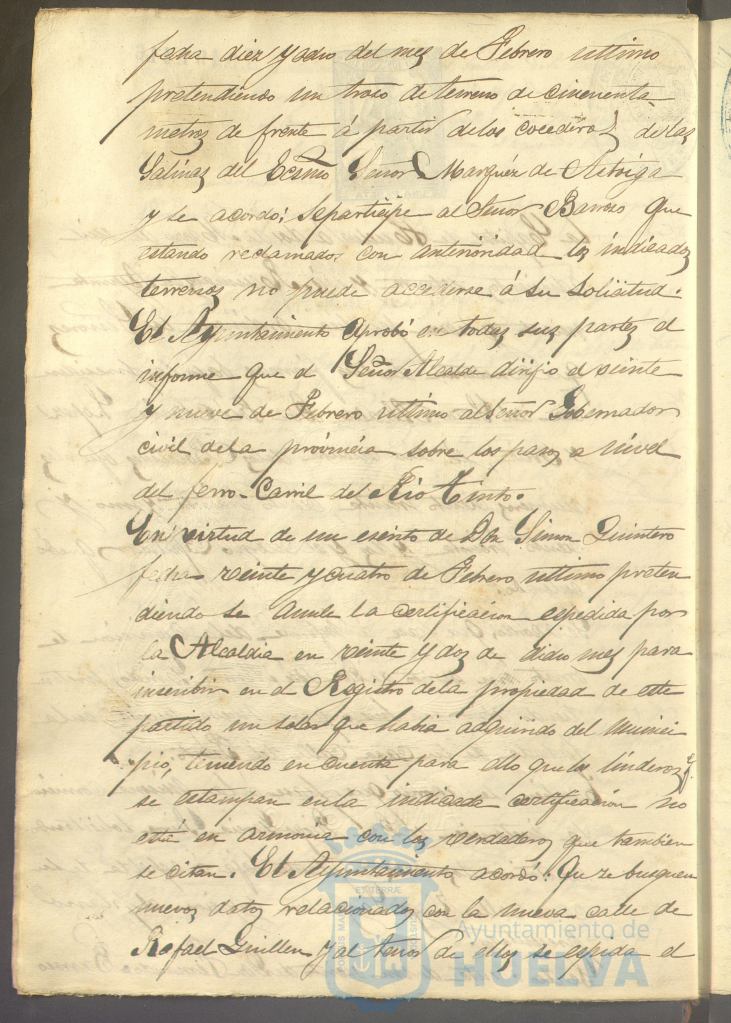 fecha diez y ocho del mes de Febrero ultimo
pretendiendo un trozo de terreno de cincuenta
metros de frente á partir de los cocederos de las
Salinas del Ecsmo Señor Marqués de Astorga
y se acordó; se participe al Señor Barrozo que
estando reclamados con anterioridad los indicados
terrenos no puede accederse á su solicitud.
El Ayuntamiento aprobó en todas sus partes el
informe que el Señor Alcalde dirijio el veinte
y nueve de Febrero ultimo al Señor Gobernador
civil de la provincia sobre los pasos a nivel
del ferro-carril del Rio Tinto.
En virtud de un escrito de Don Simon Quintero
fecha veinte y cuatro de Febrero ultimo preten
diendo se anule la certificación espedida por
la Alcaldia en veinte y dos de dicho mes para
inscribir en el Registro de la propiedad de este
partido un solar que habia adquirido del Munici
pio, teniendo en cuenta para ello que los linderos q.
se estampan en la indicada certificación no
esté en armonia con los verdaderos que tambien
se citan. El Ayuntamiento acordó: Que se busquen
nuevos datos relacionados con la nueva calle de
Rafael Guillen y al tenor de ellos se espida el
PORTUS MARIS ET TERRÆ CUSTODIA
Ayuntamiento de
HUELVA